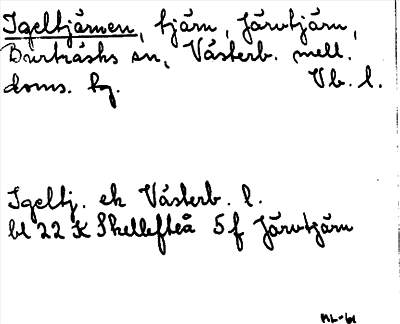 Igeltjärnen, tjärn, Järvtjärn,
Burträsks sn, Västerb. mell.
doms. hg. Vb. l.
Igeltj. ek Västerb. l.
bl 22 K Skellefteå 5f Järvtjärn
ML-61